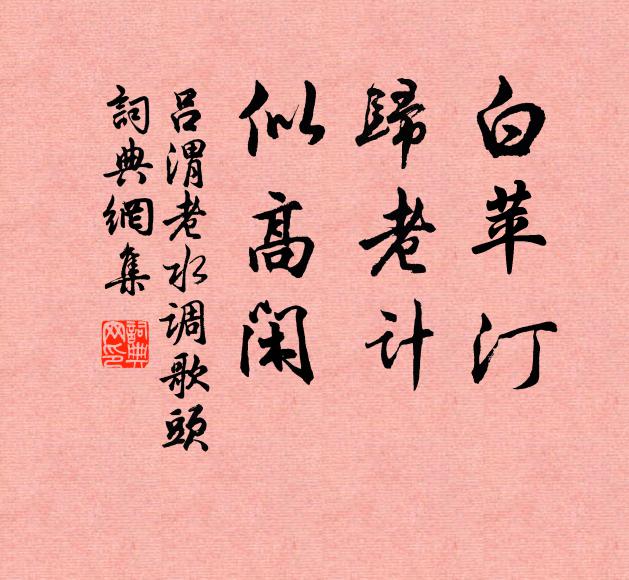 白苹汀
歸老计
似高閑
吕渭老水调歌頭
詞典網集
詞典網印